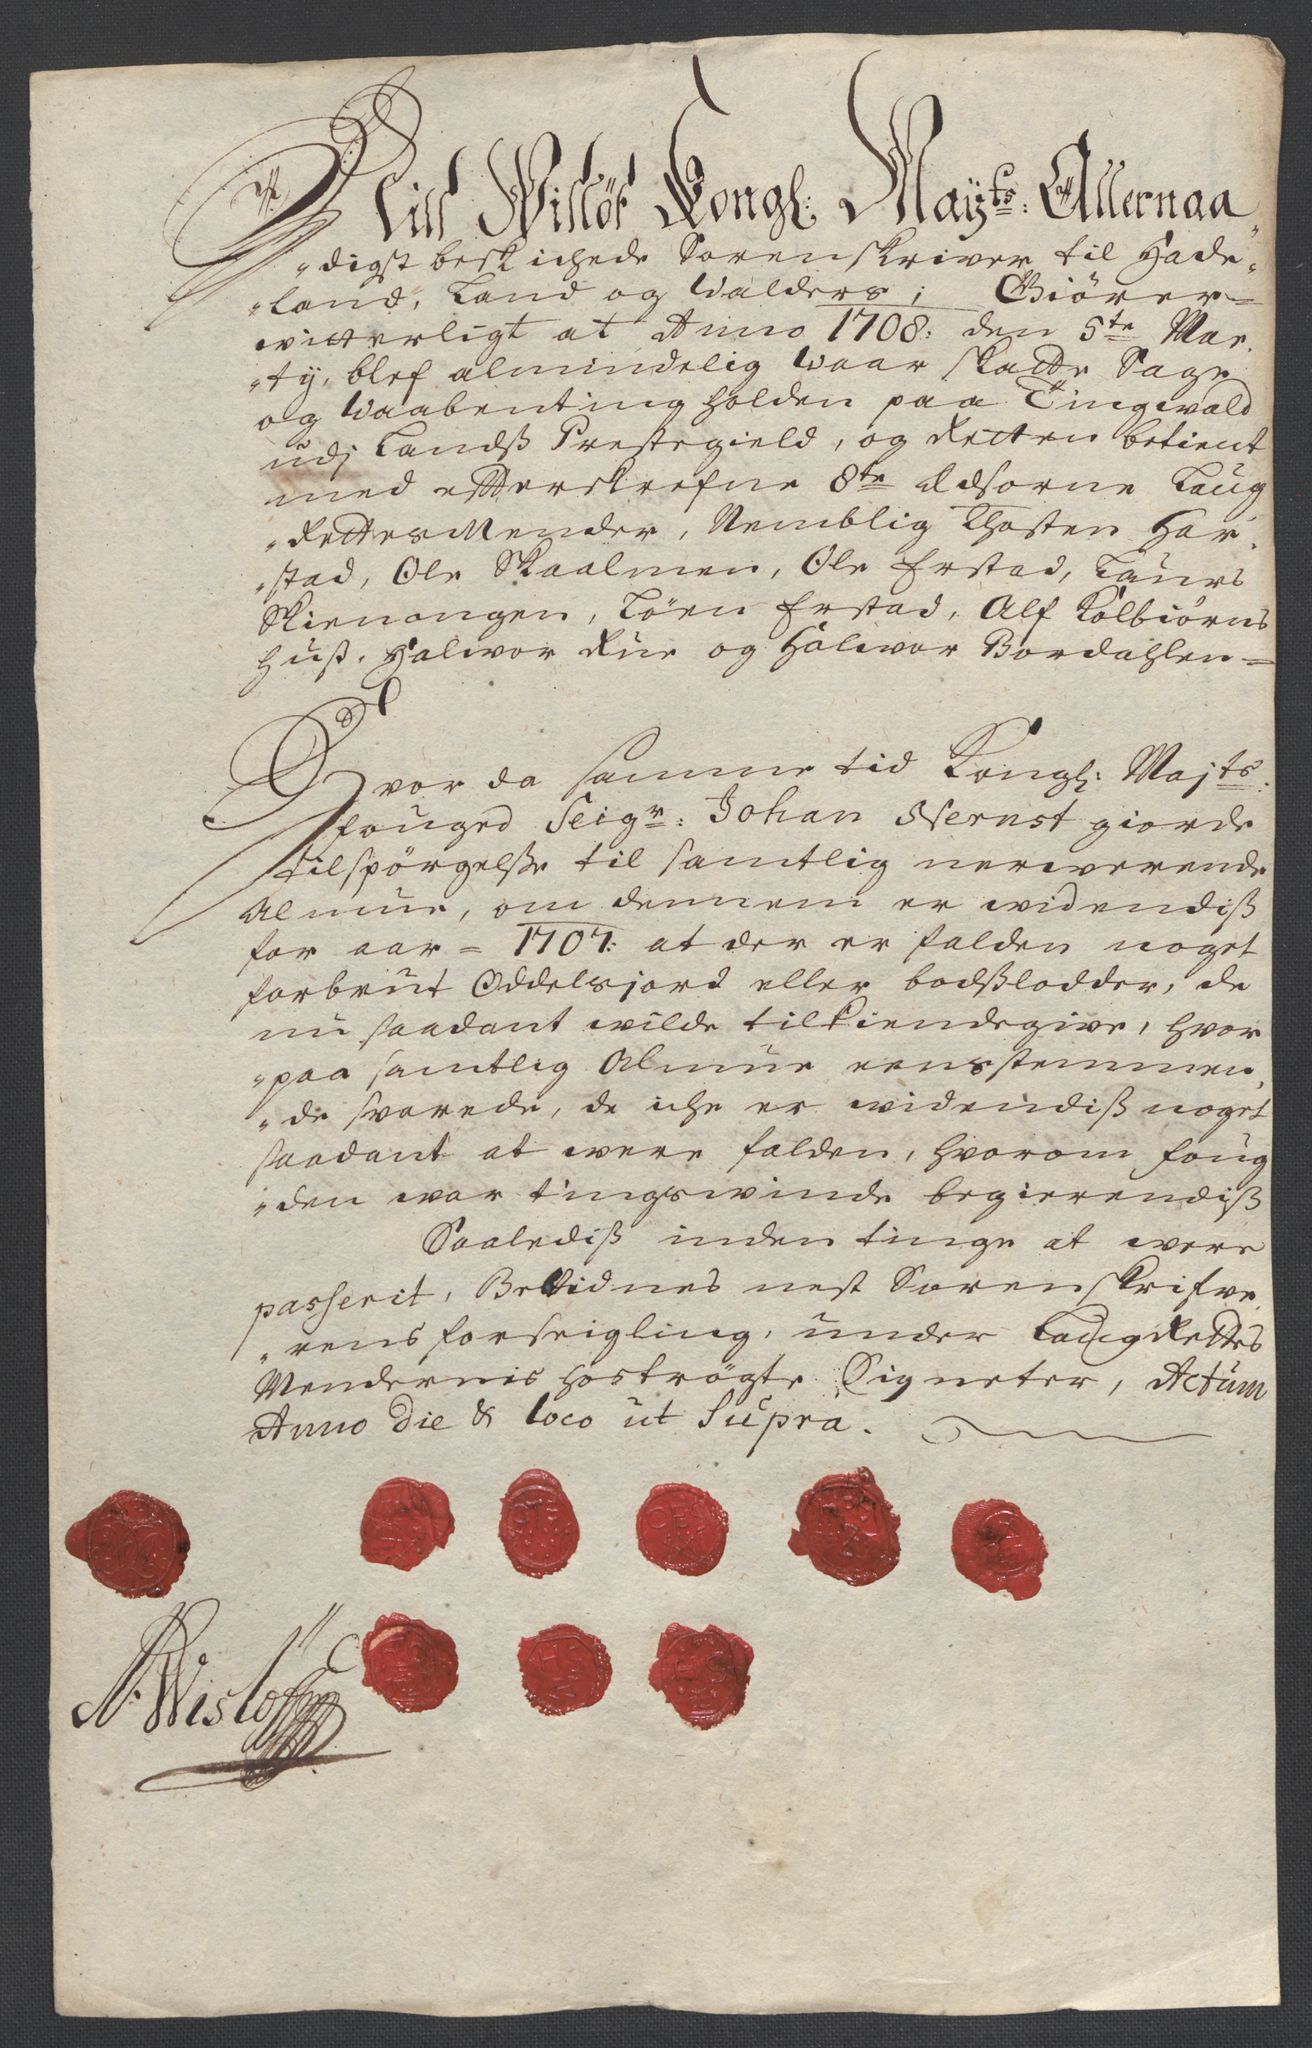 Nills Wislöf Kongl: Mayts: Allernaa
digst beskichede Sorenskriver til Hade„
„land, Land og Walders; Giörer
witterligt at Anno 1708: den 5te Mar„
„ty, blef almindelig Waar skatte Sage
og Waabenting holden paa Tingwold
udj Landß Prestegield, og Retten betient
med effterskrefne 8te Edsorne Laug
„RettesMender, Nemblig Thosten Har„
„stad, Ole Skaalmen, Ole Erstad, Laurs
Skienongen, Töen Erstad, Alf Kolbiörns
huß, Halwor Rue og Halwor Bordahlen
Hvor da samme tid Kongl: Majts:
fouged Seigr: Johan Wernst giorde
tilspörgelße til samtlig nerwerende
Almue, om dennem er widendiß
for aar 1707: at der er falden noget
forbrut Oddelsjord eller bodßlodder, de
nu saadant wilde tilkiendegive, hvor
„paa samtlig Almue eensstemmen„
„de svarede, de iche er widendiß noget
saadant at were falden, hvorom foug
„den war tingswinde begierendiß
Saalediß inden tinge at were
passerit, Bekidnes nest Sorenskrifve„
„rens forseigling, under LaugRettes
Mendernis hoströgte Signeter, Actum
Anno Die & loco ut Supra.
N. Wislöff